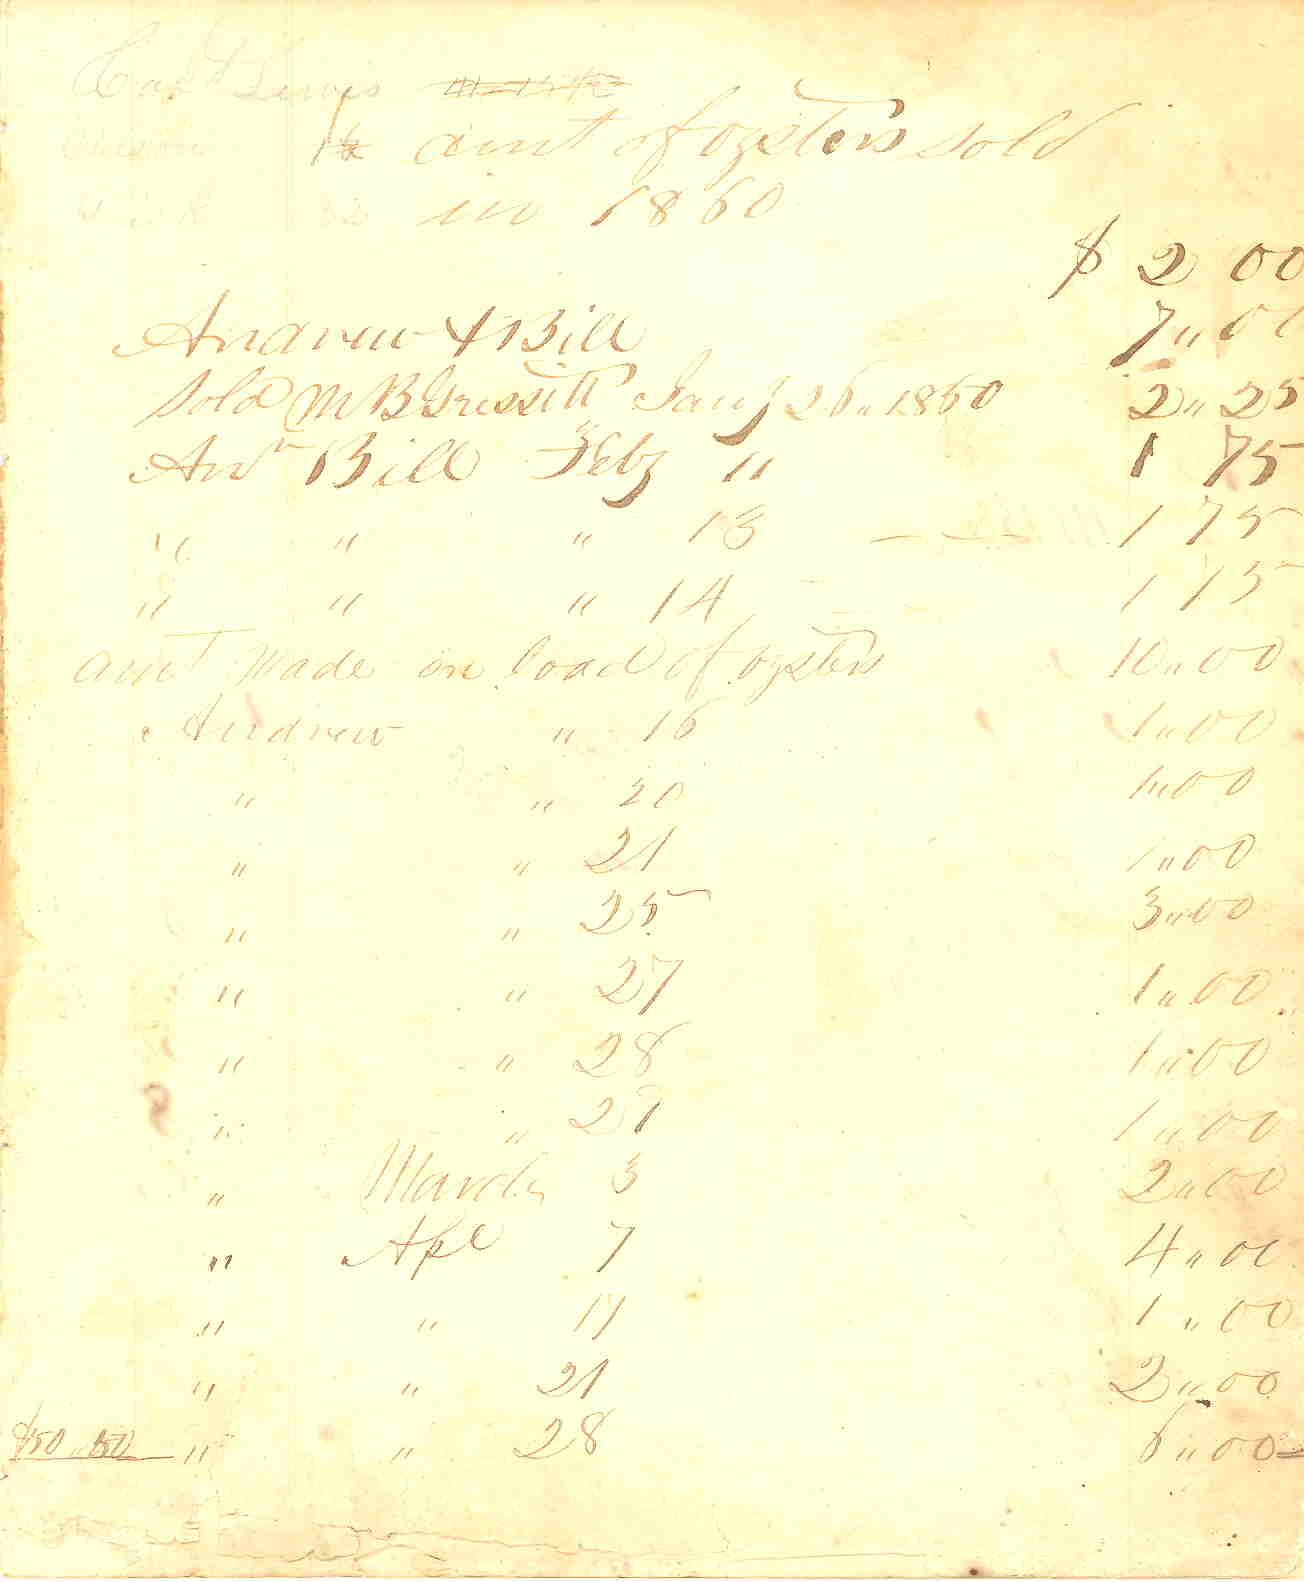 Capt Lewis
amt of oysters sold
32 in 1860
$ 2 00
Andrew & Bill 7 " 00
Sold M B Gressitt Jany 26 " 1860 2 " 25
Anw Bill Feby " 1 75
" " " 13 1 75
" " " 14 1 75
amt made on load of oysters 10 " 00
Andrew " 16 1 " 00
" " 20 1 " 00
" " 21 1 " 00
" " 25 3 " 00
" " 27 1 " 00
" " 28 1 " 00
" " 1 " 00
" March 3 2 " 00
" Apl 7 4 " 00
" " 1 " 00
" " 21 2 " 00
$50 " 50 " " 28 6 " 00